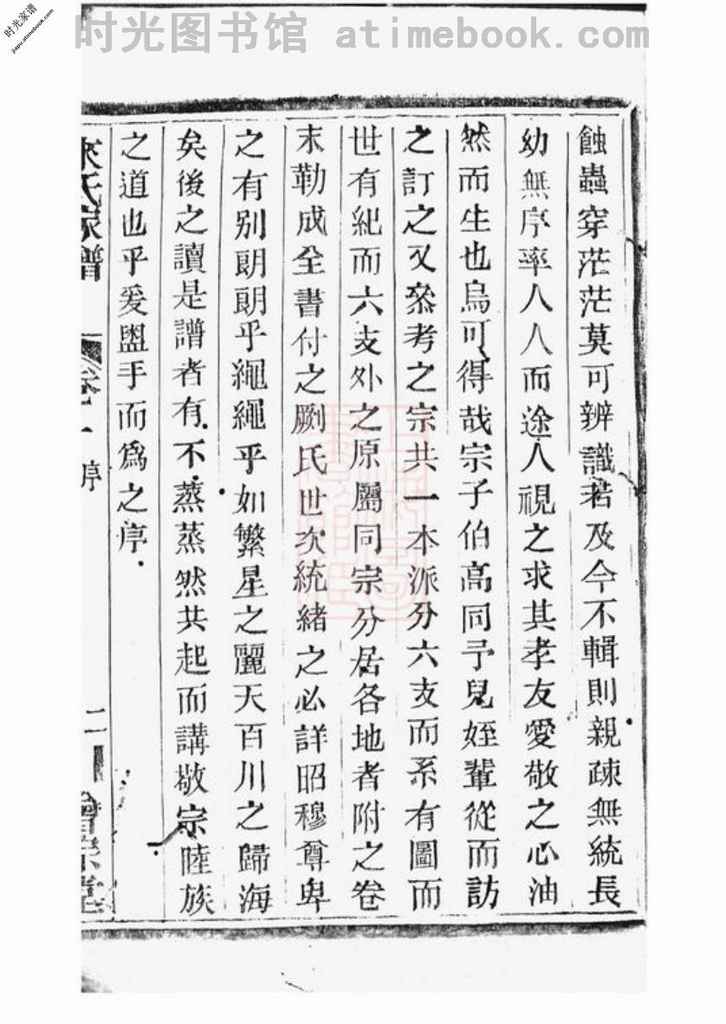 时光图书馆 atimebook.com
时光家谱
jiapu.atimebook.com
蝕蟲穿茫茫莫可辨識若及今不輯則親疎無統長
幼無序率人人而途人視之求其孝友愛敬之心油
然而生也烏可得哉宗子伯高同予兒姪輩從而訪
之訂之又叅考之宗共一本派分六支而系有圖而
世有紀而六支外之原屬同宗分居各地者附之卷
末勒成全書付之劂氏世次統緒之必詳昭穆尊卑
之有别朗朗乎繩繩乎如繁星之麗天百川之歸海
矣後之讀是譜者有不蒸蒸然共起而講敬宗陸族
之道也乎爰盥手而為之序
氏家譜
卷一 序
二
堂